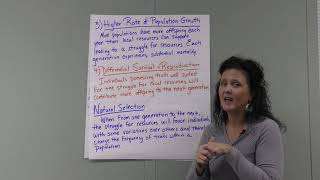 3) Higher Rate of Population Growth
Most populations have more offspring each
year than local resources can support
leading to a struggle for resources. Each
generation experiences substantial mortality.
4) Differential Survival & Reproduction
Individuals possessing traits well suited
for the struggle for local resources will
contribute more offspring to the next generation.
Natural Selection
When from one generation to the next,
the struggle for resources will favor individuals
with some variations over others and
change the frequency of traits within a
population.